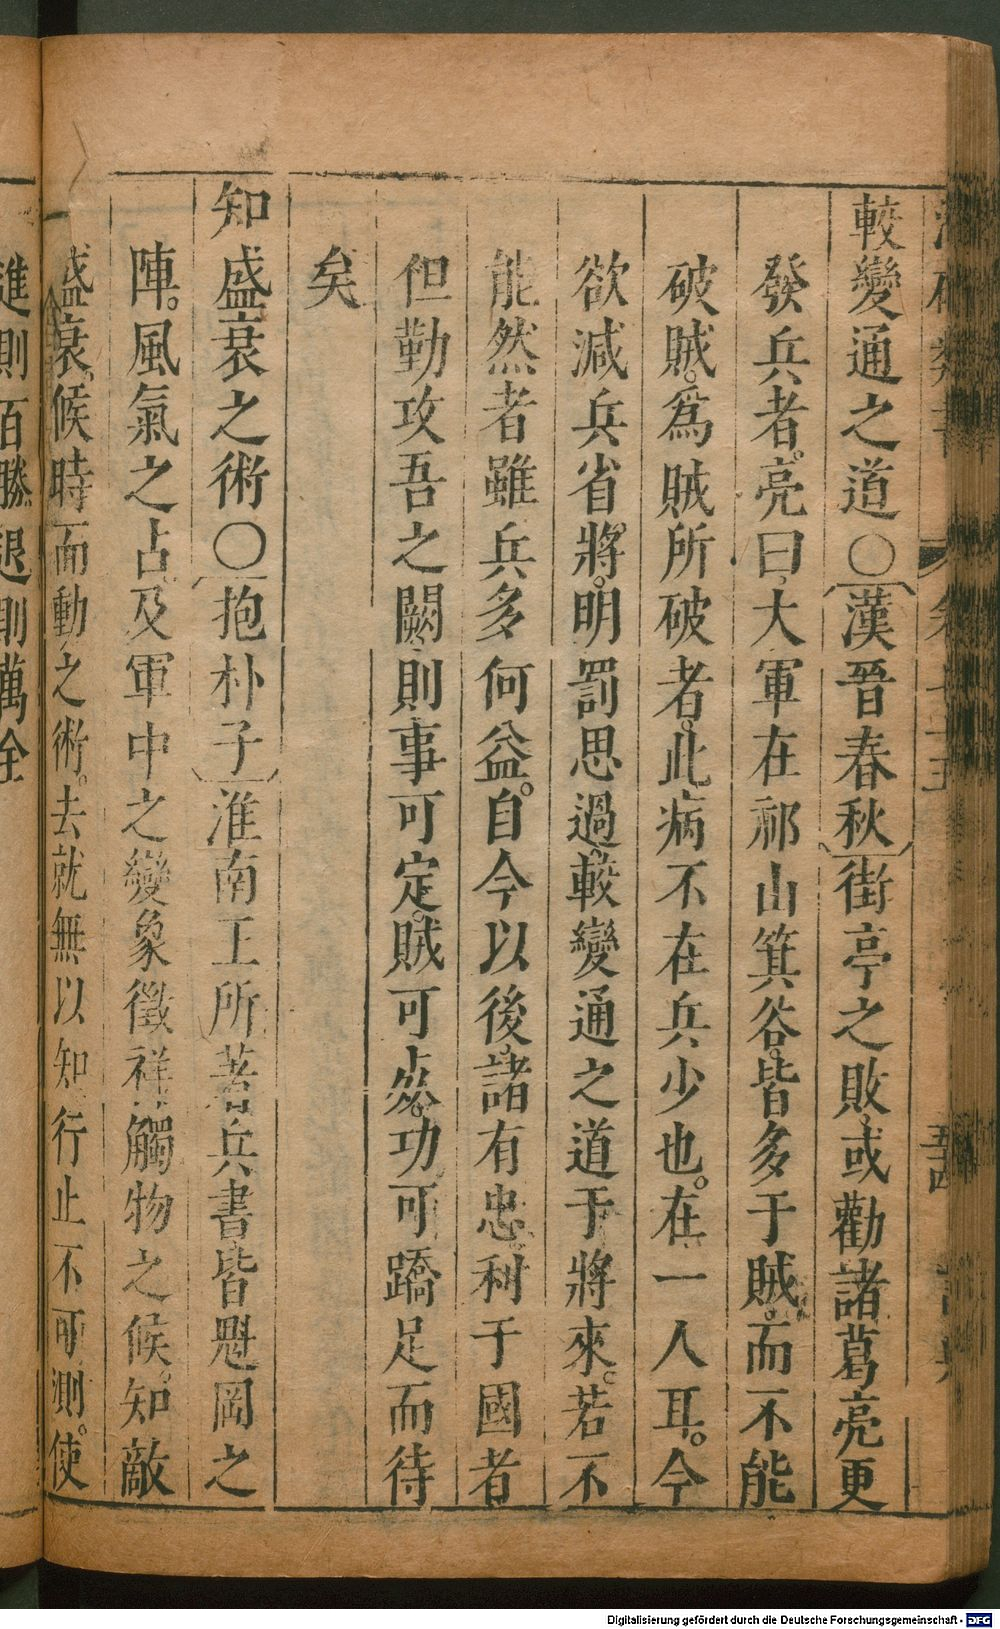 較變通之道〇漢晉春秋街亭之敗或勸諸葛亮更
發兵者。亮曰大軍在祁山箕谷皆多于賊。而不能
破賊。爲賊所破者。此病不在兵少也。在一人耳。今
欲減兵省將。明罰思過。較變通之道于將來。若不
能然者雖兵多何益。自今以後諸有忠利于國者
但勤攻吾之闕則事可定。賊可死。功可蹻足而待
矣
知盛衰之術〇抱朴子淮南王所著兵書皆魁岡之
陣。風氣之占及軍中之變象徵祥觸物之候。知敵
盛衰。候時而動之術。去就無以知行止不可測。使
進則百勝退則萬全
Digitalisierung gefördert durch die Deutsche Forschungsgemeinschaft - DFG